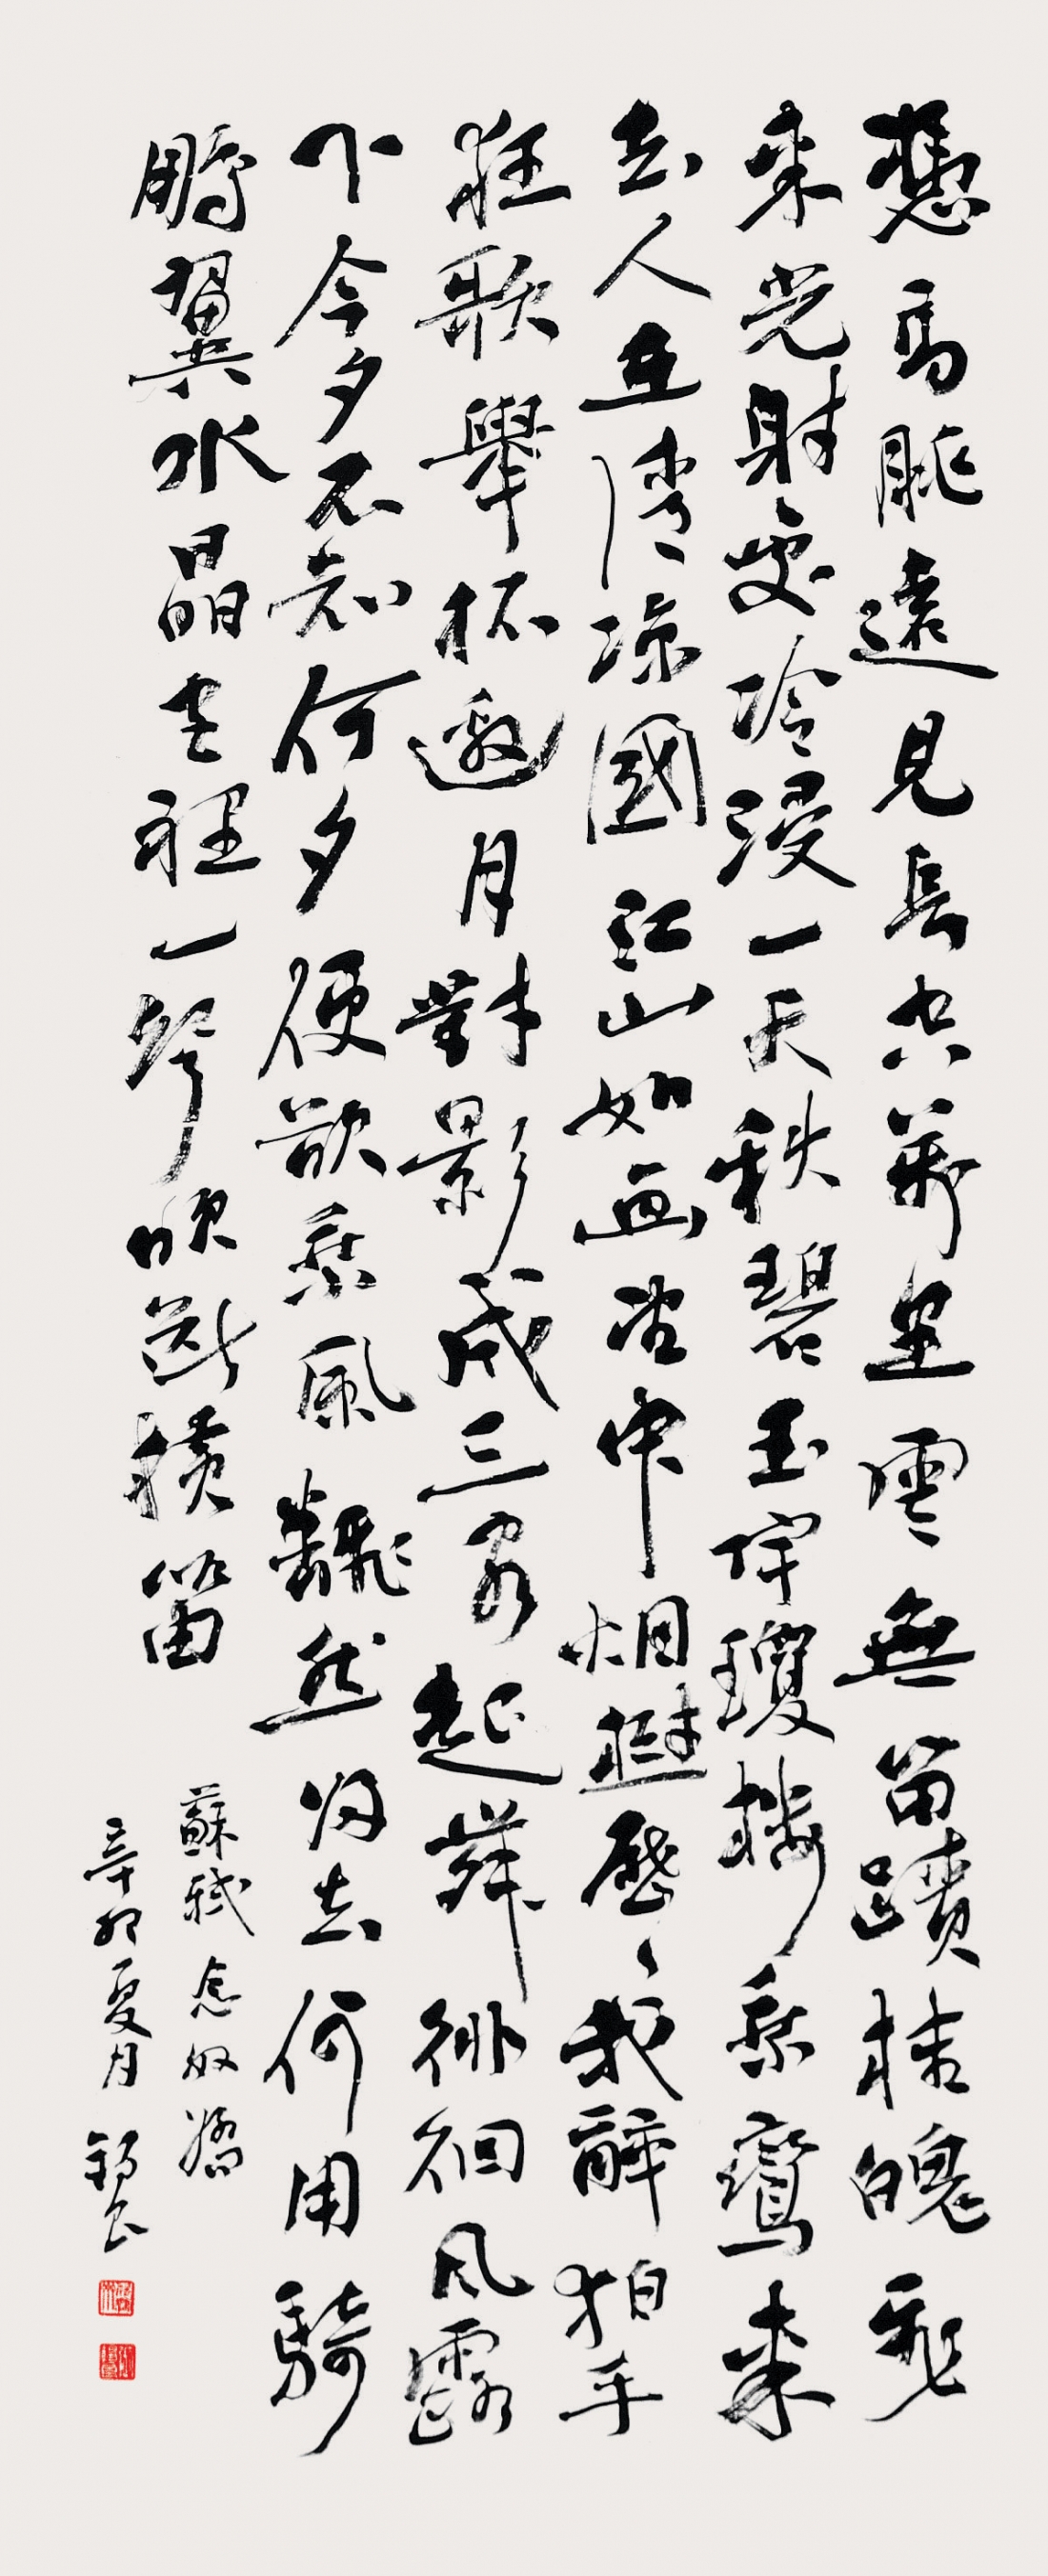 憑高眺遠見長空萬里雲無留蹟桂魄飛
來光射處冷浸一天秋碧玉宇瓊樓乘鸞來
去人在清凉國江山如畫望中烟樹歷歷我醉拍手
狂歌舉杯邀月對影成三客起舞徘徊風露
下今夕不知何夕便欲乘風飜然歸去何用騎
鵬翼水晶宮裡一聲吹斷橫笛
蘇軾念奴嬌
辛卯夏月